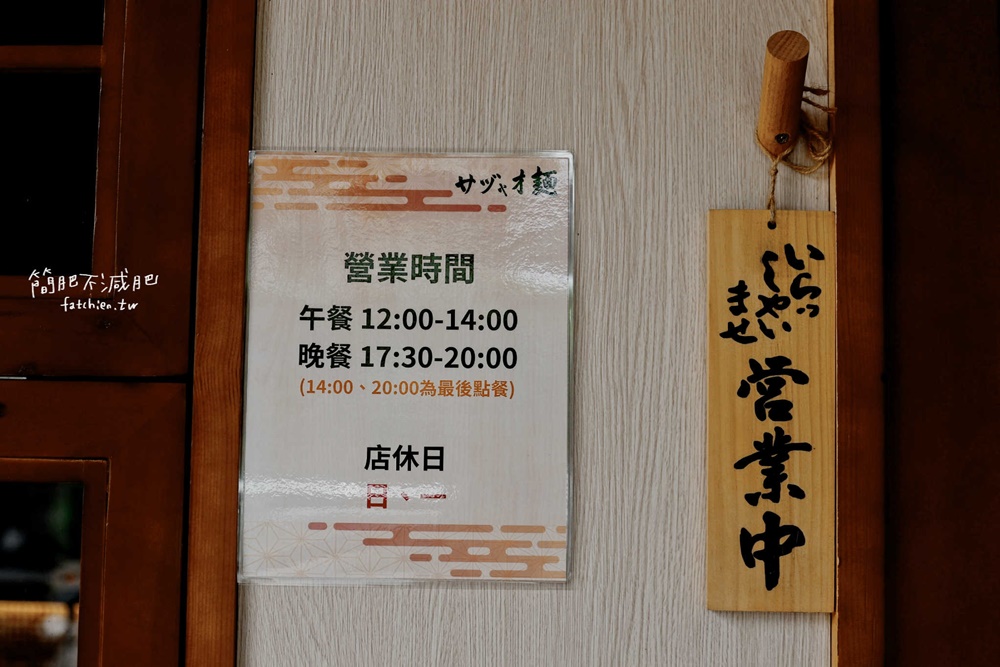 簡肥不減肥
fatchien.tw
サヅャオ麵
營業時間
午餐 12:00-14:00
晚餐 17:30-20:00
(14:00、20:00為最後點餐)
店休日
日、一
いらっ
しゃい
ませ
営業中